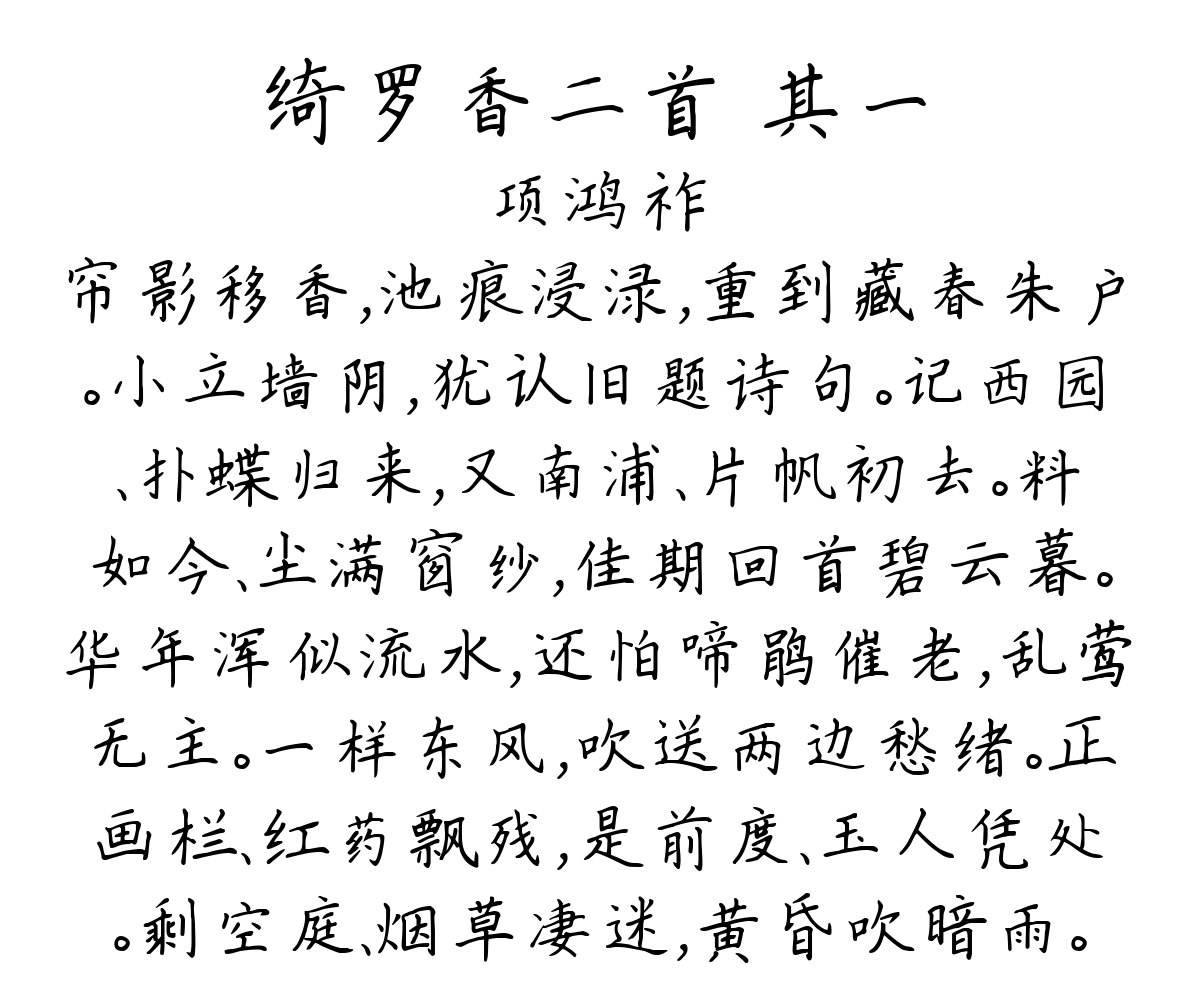 绮罗香二首 其一
项鸿祚
帘影移香,池痕浸渌,重到藏春朱户
。小立墙阴,犹认旧题诗句。记西园
、扑蝶归来,又南浦、片帆初去。料
如今、尘满窗纱,佳期回首碧云暮。
华年浑似流水,还怕啼鹃催老,乱莺
无主。一样东风,吹送两边愁绪。正
画栏、红药飘残,是前度、玉人凭处
。剩空庭、烟草凄迷,黄昏吹暗雨。